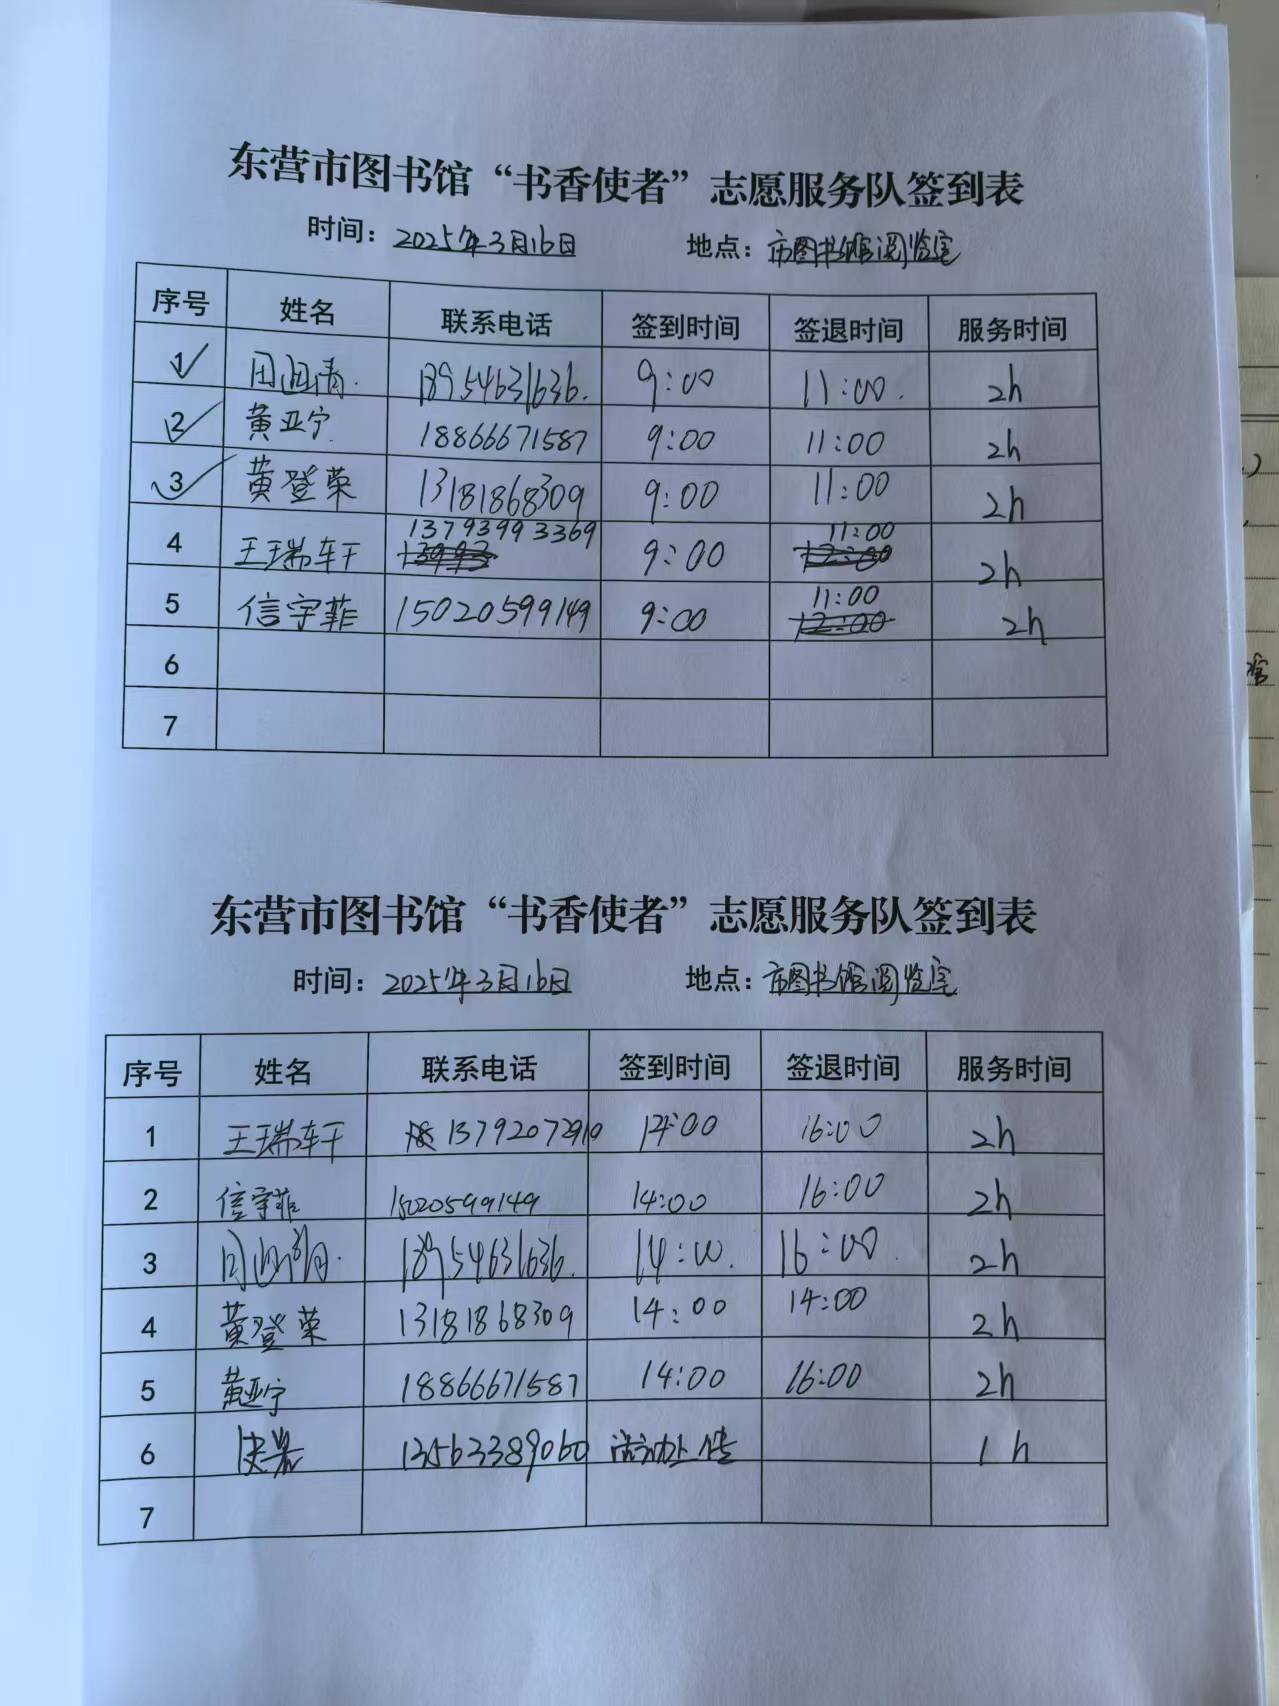 东营市图书馆“书香使者”志愿服务队签到表
时间：2025年3月16日 地点：市图书馆阅览室
序号 姓名 联系电话 签到时间 签退时间 服务时间
1 18954631636. 9:00 11:00. 2h
2 黄亚宁 18866671587 9:00 11:00 2h
3 黄登荣 13181868309 9:00 11:00 2h
4 王瑞轩 13793993369 9:00 11:00 2h
5 信宇菲 15020599149 9:00 11:00 2h
6
7
东营市图书馆“书香使者”志愿服务队签到表
时间：2025年3月16日 地点：市图书馆阅览室
序号 姓名 联系电话 签到时间 签退时间 服务时间
1 王瑞轩 13792072910 14:00 16:00 2h
2 信宇菲 15020599149 14:00 16:00 2h
3 18954631636. 14:00. 16:00. 2h
4 黄登荣 13181868309 14:00 14:00 2h
5 黄亚宁 18866671587 14:00 16:00 2h
6 13563389060 1h
7